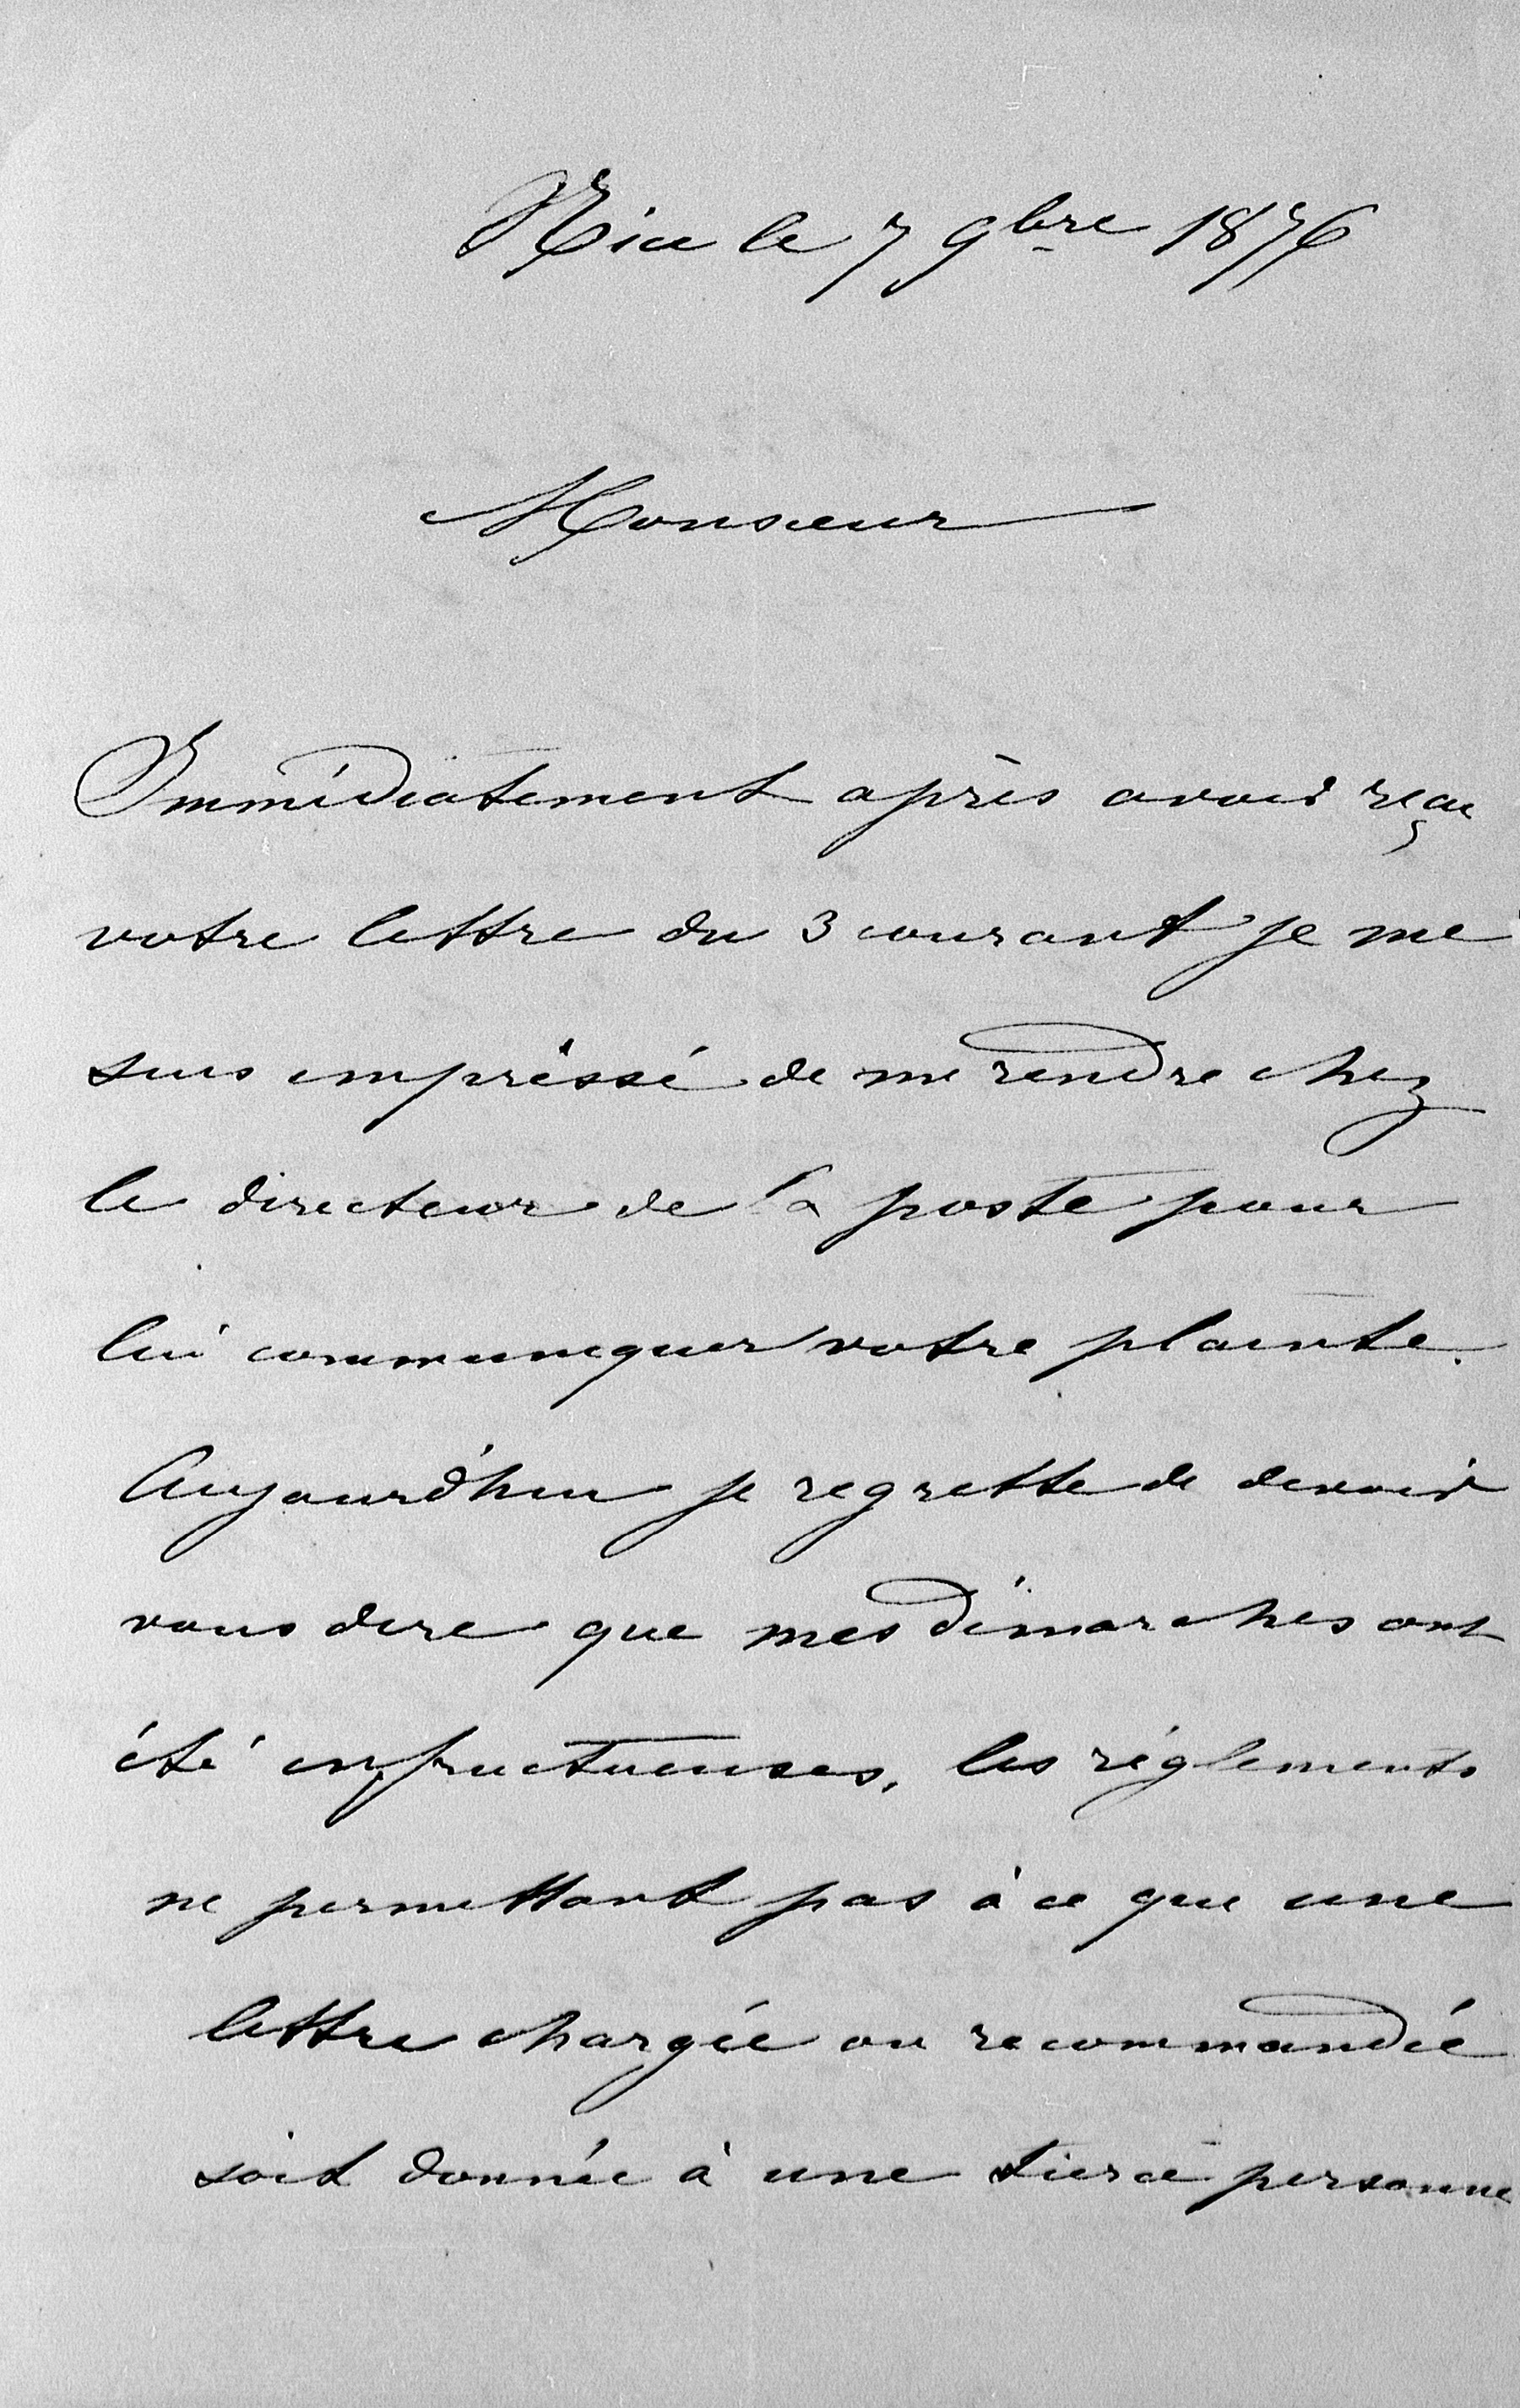 Nice le 7 9bre 1876
Monsieur
Immédiatement après avoir reçu
votre lettre du 3 courant je me
suis empréssé de me rendre chez
le directeur de la poste pour
lui communiquer votre plainte.
Aujourd'hui je regrette de devoir
vous dire que mes démarches ont
été infructueuses, les réglements
ne permettant pas à ce que une
lettre chargée ou recommandée
soit donnée à une tierce personne